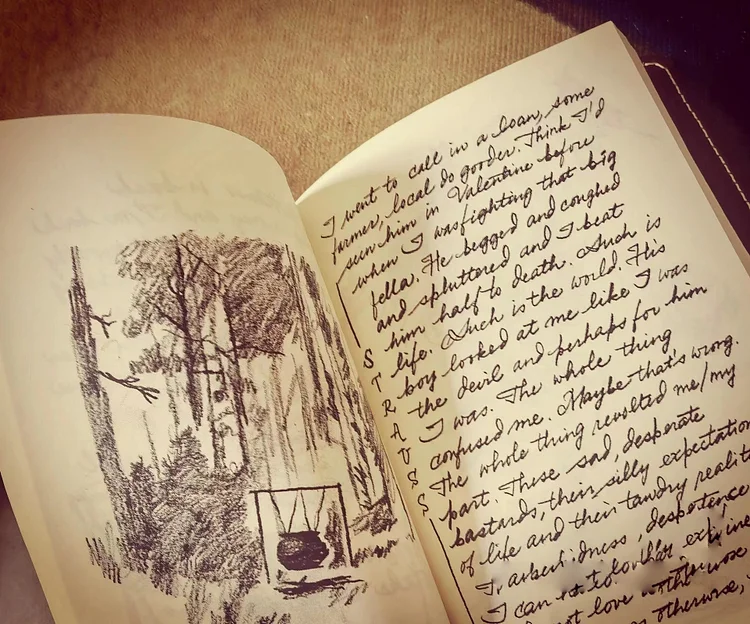 I went to call in a loan, some
farmer, local do gooder. Think I'd
seen him in Valentine before
when I was fighting that big
fella. He begged and coughed
and spluttered and I beat
him half to death. Such is
life. Such is the world. His
boy looked at me like I was
the devil and perhaps for him
I was. The whole thing
confused me. Maybe that's wrong.
The whole thing revolted me/my
part. These sad, desperate
bastards, their silly expectation
of life and their tawdry realit
I can
not love
otherwise,
STRAUSS